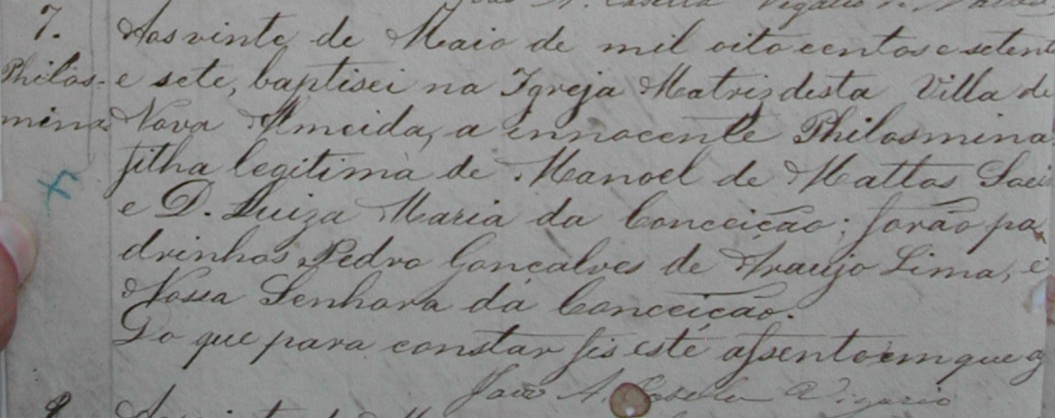 7.
Philos-
mina
Aos vinte de Maio de mil oito centos e setent
e sete, baptisei na Igreja Matriz desta Villa de
Nova Almeida, a innocente Philosmina
filha legitima de Manoel de Mattos
e D. Luiza Maria da Conceição; forão pa
drinhos Pedro Gonçalves de Araujo Lima, e
Nossa Senhora da Conceição.
Do que para constar fis este assento em que
João A. Casella Vigario